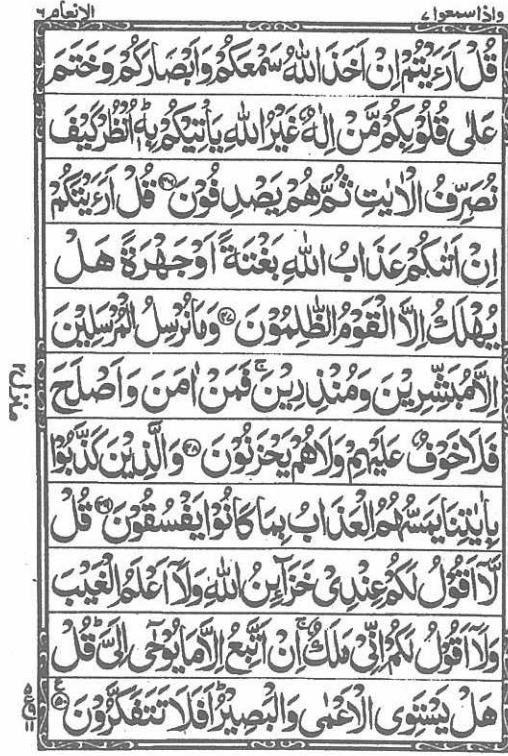 واذا سمعوا ٧
الانعام ٦
قُلْ اَرَءَيْتُمْ اِنْ اَخَذَ اللّٰهُ سَمْعَكُمْ وَاَبْصَارَكُمْ وَخَتَمَ
عَلٰى قُلُوْبِكُمْ مَّنْ اِلٰهٌ غَيْرُ اللّٰهِ يَاْتِيْكُمْ بِهٖ ؕ اُنْظُرْ كَيْفَ
نُصَرِّفُ الْاٰيٰتِ ثُمَّ هُمْ يَصْدِفُوْنَ ﴿۴۶﴾ قُلْ اَرَءَيْتَكُمْ
اِنْ اَتٰىكُمْ عَذَابُ اللّٰهِ بَغْتَةً اَوْ جَهْرَةً هَلْ
يُهْلَكُ اِلَّا الْقَوْمُ الظّٰلِمُوْنَ ﴿۴۷﴾ وَمَا نُرْسِلُ الْمُرْسَلِيْنَ
اِلَّا مُبَشِّرِيْنَ وَمُنْذِرِيْنَ ۚ فَمَنْ اٰمَنَ وَاَصْلَحَ
فَلَا خَوْفٌ عَلَيْهِمْ وَلَا هُمْ يَحْزَنُوْنَ ﴿۴۸﴾ وَالَّذِيْنَ كَذَّبُوْا
بِاٰيٰتِنَا يَمَسُّهُمُ الْعَذَابُ بِمَا كَانُوْا يَفْسُقُوْنَ ﴿۴۹﴾ قُلْ
لَّاۤ اَقُوْلُ لَكُمْ عِنْدِىْ خَزَآئِنُ اللّٰهِ وَلَاۤ اَعْلَمُ الْغَيْبَ
وَلَاۤ اَقُوْلُ لَكُمْ اِنِّىْ مَلَكٌ ۚ اِنْ اَتَّبِعُ اِلَّا مَا يُوْحٰۤى اِلَىَّ ؕ قُلْ
هَلْ يَسْتَوِى الْاَعْمٰى وَالْبَصِيْرُ ؕ اَفَلَا تَتَفَكَّرُوْنَ ﴿۵۰﴾ ع
منزل ٢